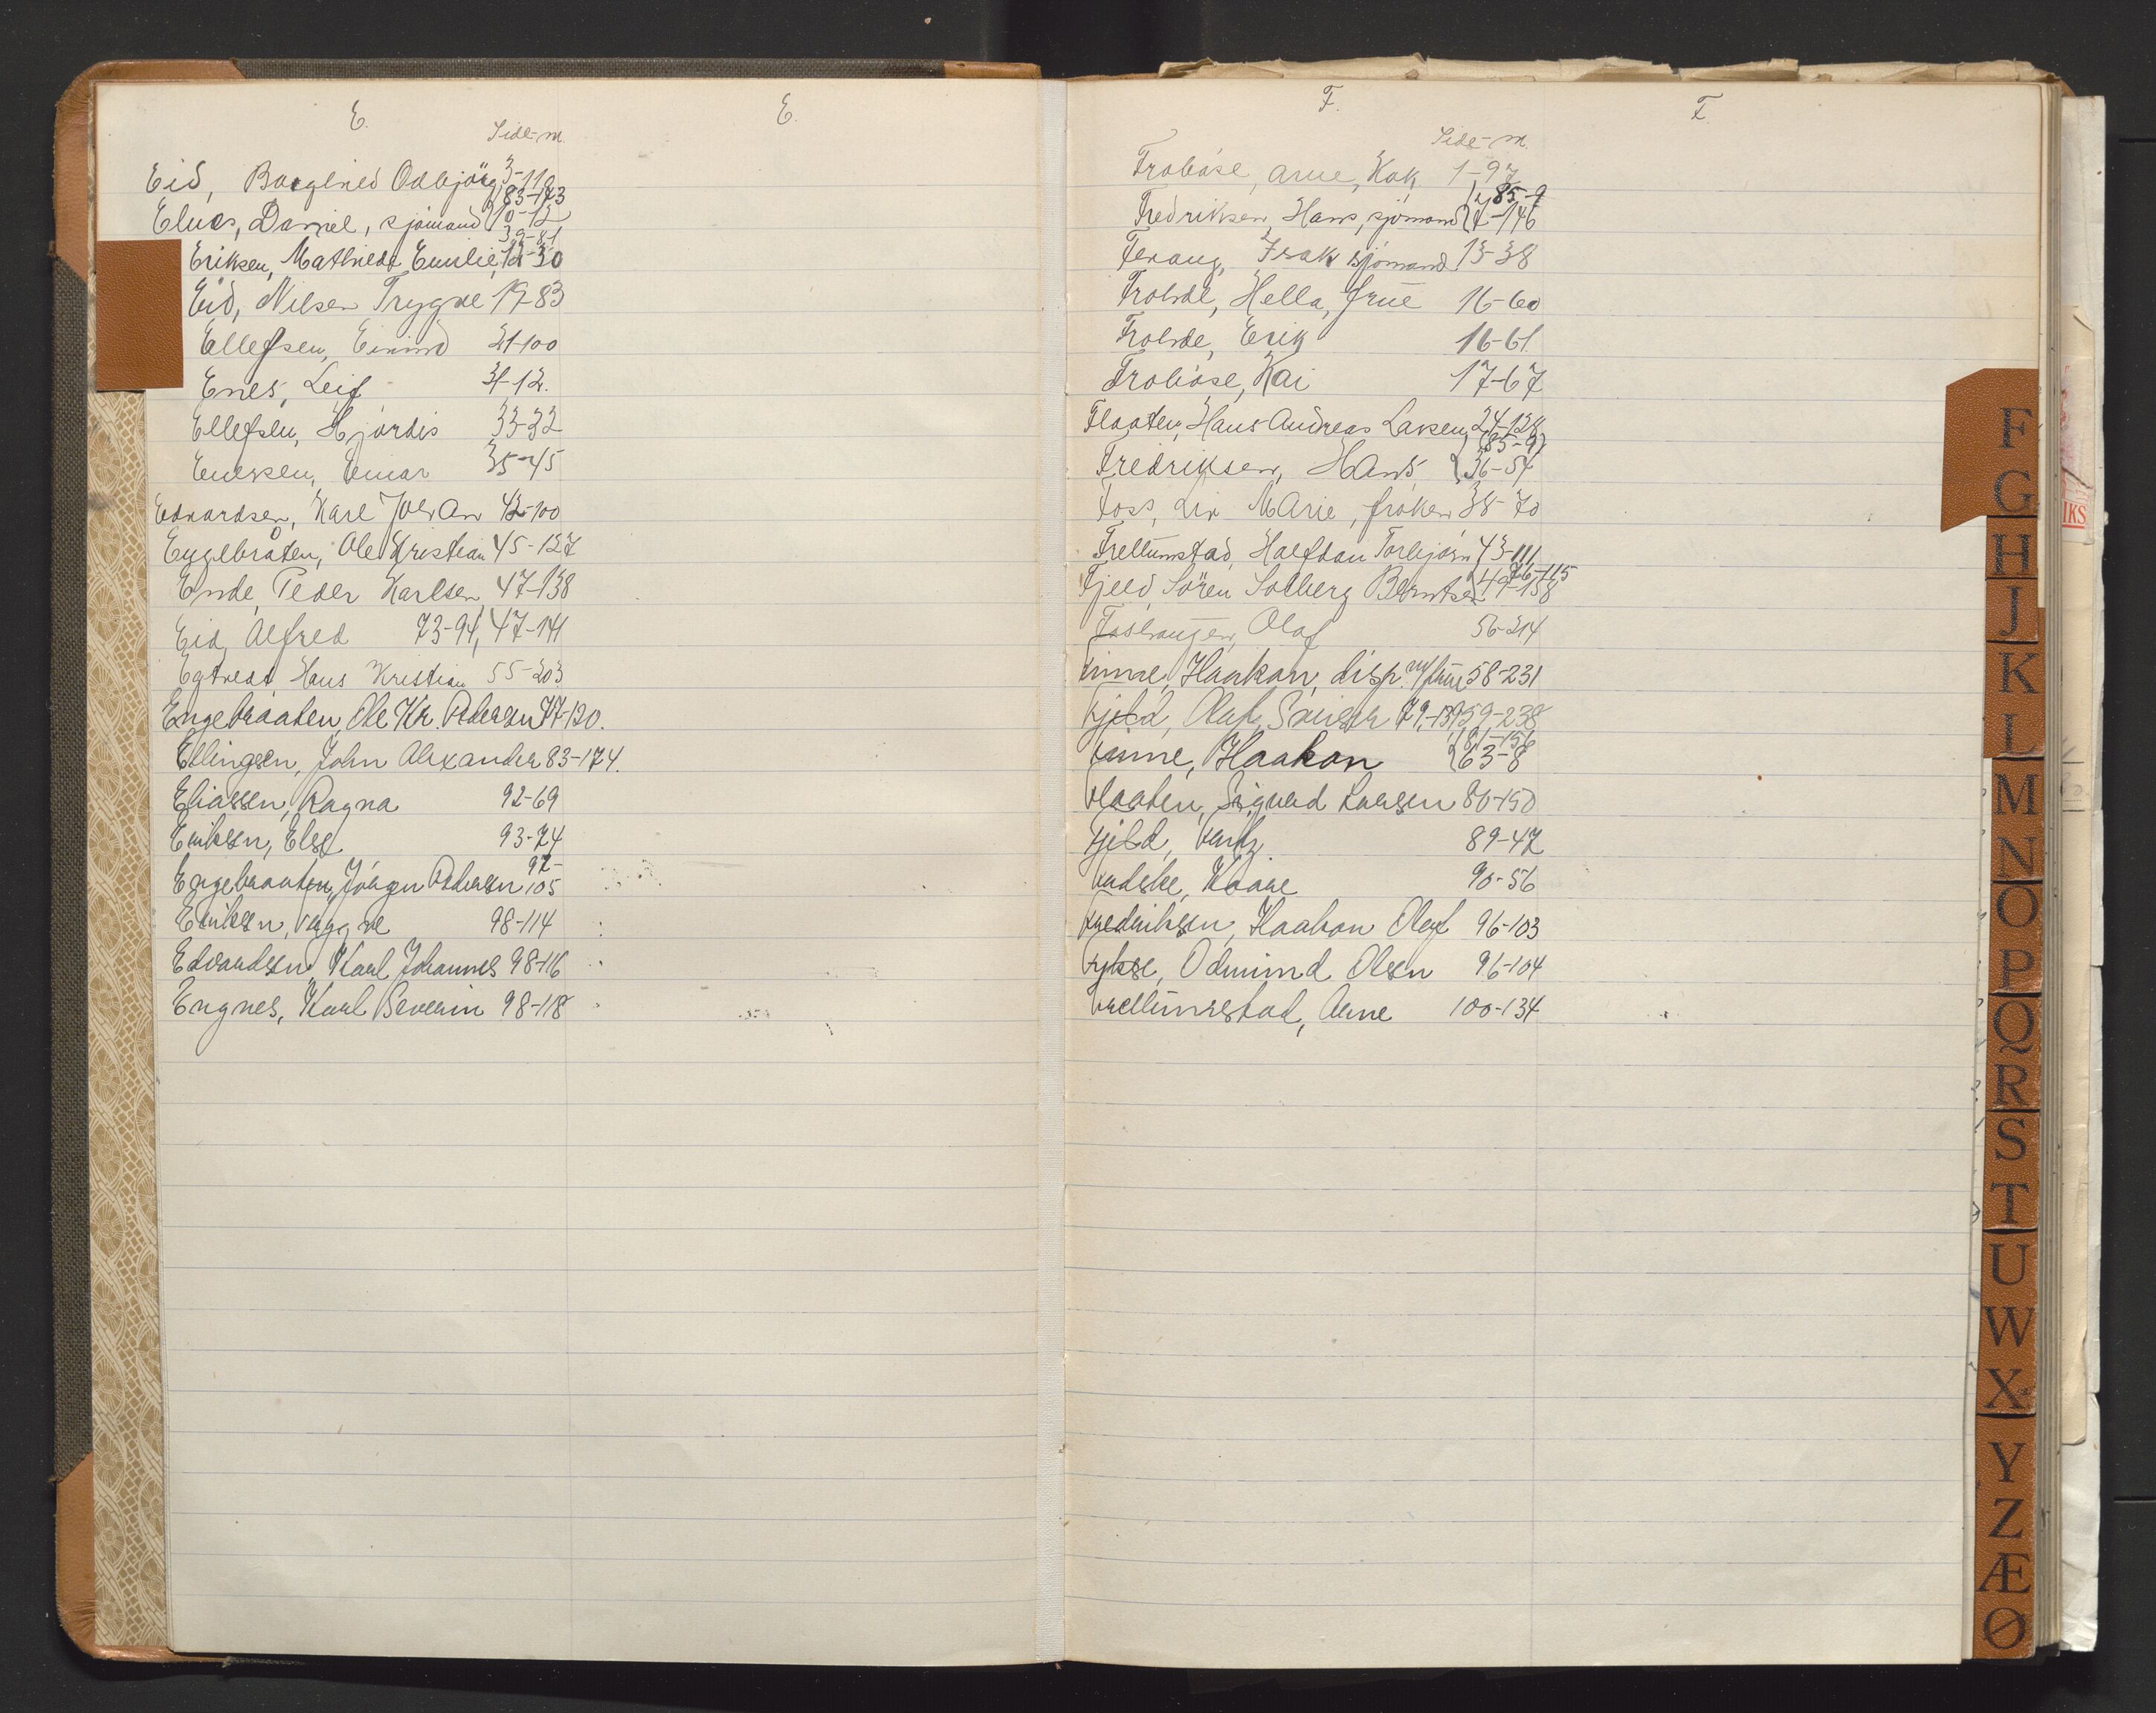 E.
Side-m.
E.
Eid, Borghild Odbjörg 3-110
83-173
Elnes, Daniel, sjömand 10-12
39-81
Eriksen, Mathilde Emilie 12-30
Eid, Nilsen Trygve 19-83
Ellefsen, Eivind 21-100
Enes, Leif 31-12.
Ellefsen, Hjördis 33-32
Einar 35-45
Edvardsen, Karl Johan 42-100
Engelbråten, Ole Kristian 45-127
Ende, Peder Karlsen 47-138
Eid, Alfred 73-94, 47-141
Egtvedt, Hans Kristian 55-203
Engebraaten, Ole Kr. Pedersen 77-120.
Ellingsen, John Alexander 83-174.
Eliassen, Ragna 92-69
Eriksen, Else 93-74
97-
Engebraaten, Jörgen Pedersen 105
Eriksen, Trygve 98-114
Edvardsen, Karl Johannes 98-116
Engnes, Karl Severin 98-118
F.
Side-m.
F.
Froböse, Arne, Kok 1-97
85-9
Fredriksen, Hans, sjömand 4-146
Fevang, Isak sjömand 13-38
Frohde, Hella, frue 16-60
Frohde, Erik 16-61
Froböse, Kai 17-67
Flaaten, Hans Andreas Larsen, 24-124
(85-9)
Fredriksen, Hans, 36-54
Foss, Liv Marie, fröken 38-70
Frellumstad, Halfdan Torbjörn 43-111
76-115
Fjeld, Sören Solberg Berntsen 49-158
Olaf 56-214
Finne, Haakon, disp. m/frue 58-231
Fjeld, Olaf, 79-139 59-238
81-156
Finne, Haakon 63-8
Flaaten, Sigurd Larsen 80-150
Fjeld, 89-47
Kaare 90-56
Fredriksen, Haakon Olaf 96-103
Fykse, Odmund Olsen 96-104
Frellumstad, Arne 100-134
F
G
H
J
K
L
M
N
O
P
Q
R
S
T
U
W
X
Y
Z
Æ
Ø
IKS